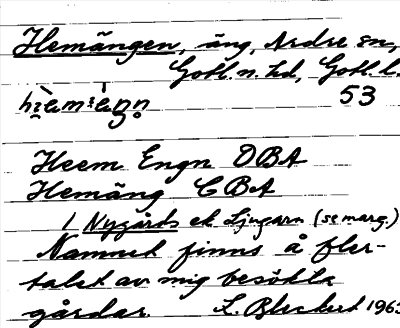 Hemängen, äng, Ardre sn,
Gotl. n. hd, Gotl. l.
53
Heem Engn DBA
Hemäng CBA
1 Nygårds ek Ljugarn (se marg.)
Namnet finns å fler-
talet av mig besökta
gårdar. L. Bleckert